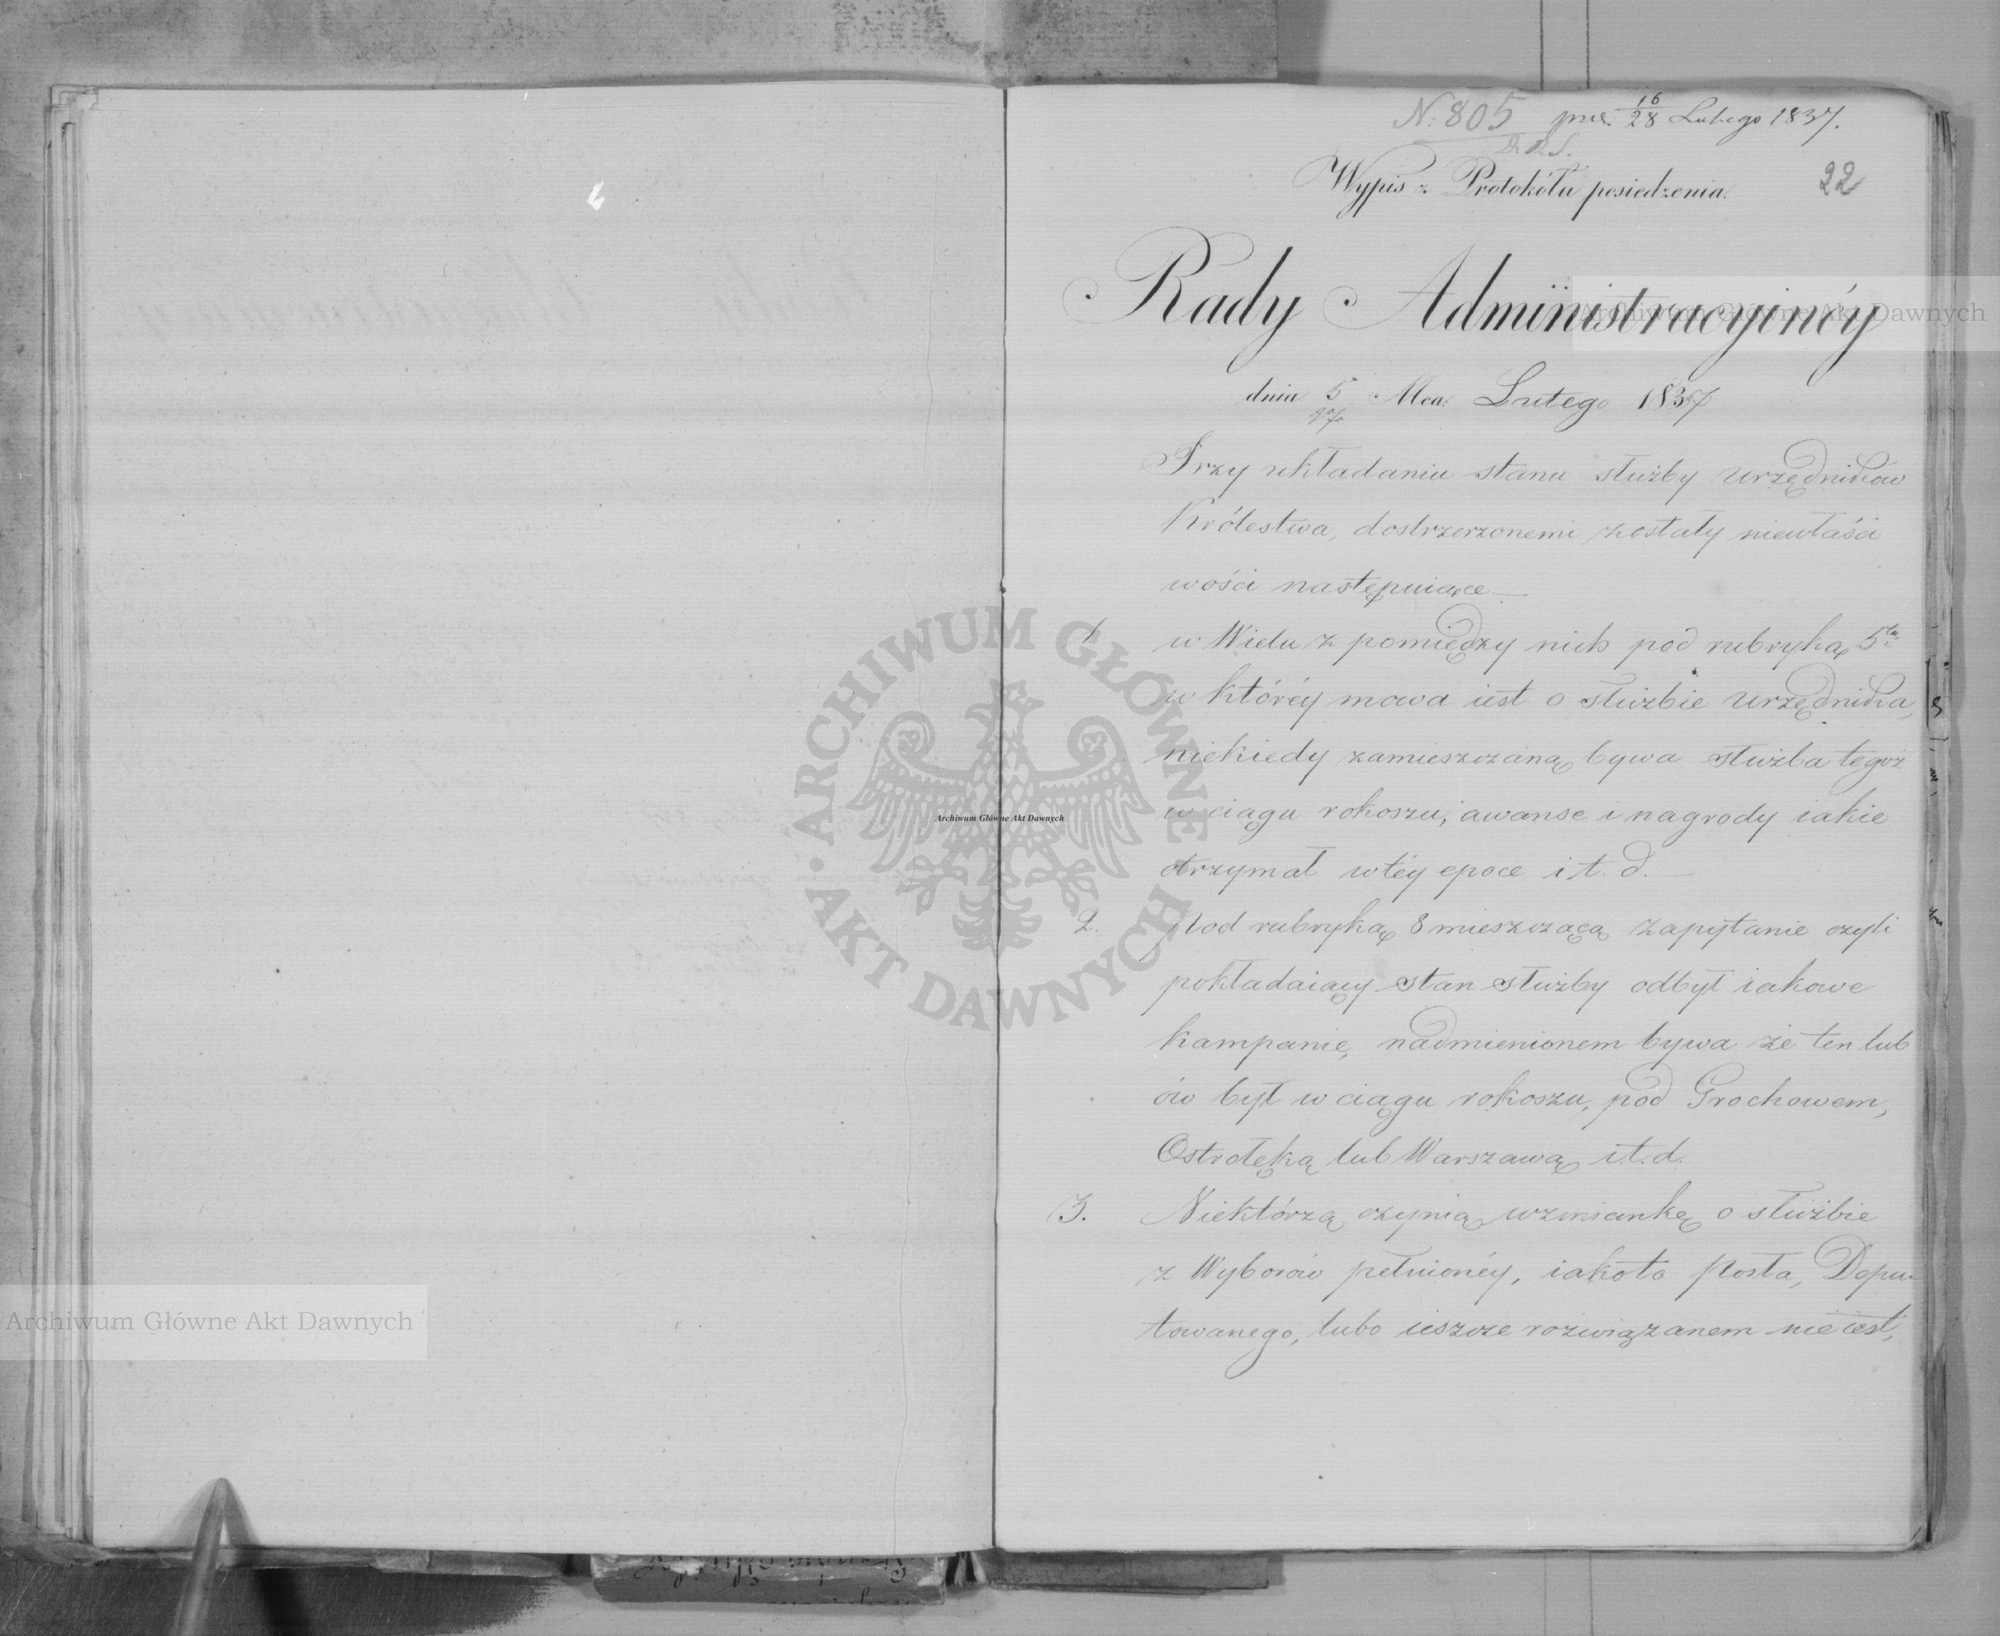 N. 805 pres. 16/28 Lutego 1837.
22
Wypis z Protokółu posiedzenia
Rady Administracyinéy
dnia 5/17 Mca Lutego 1837
Przy układaniu stanu służby urzędników
Królestwa, dostrzerzonemi zostały niewłaści
wości następuiące —
1. w Wielu z pomiędzy nich pod rubryką 5tą
w któréy mowa iest o służbie urzędnika,
niekiedy zamieszczaną bywa służba tegoż
w ciągu rokoszu, awanse i nagrody iakie
otrzymał w téy epoce i t. d. —
2. Pod rubryką 8 mieszczącą zapytanie czyli
pokładaiący stan służby odbył iakowe
kampanie, nadmienionem bywa że ten lub
ów był w ciągu rokoszu, pod Grochowem,
Ostrołęką lub Warszawą i.t.d.
3. Niektórzą czynią wzmiankę o służbie
z Wyborów pełnionéy, iakoto Posła, Depu
towanego, lubo ieszcze rozwiązanem nie iest,
ARCHIWUM GŁÓWNE AKT DAWNYCH
Archiwum Główne Akt Dawnych
Archiwum Główne Akt Dawnych
Archiwum Główne Akt Dawnych